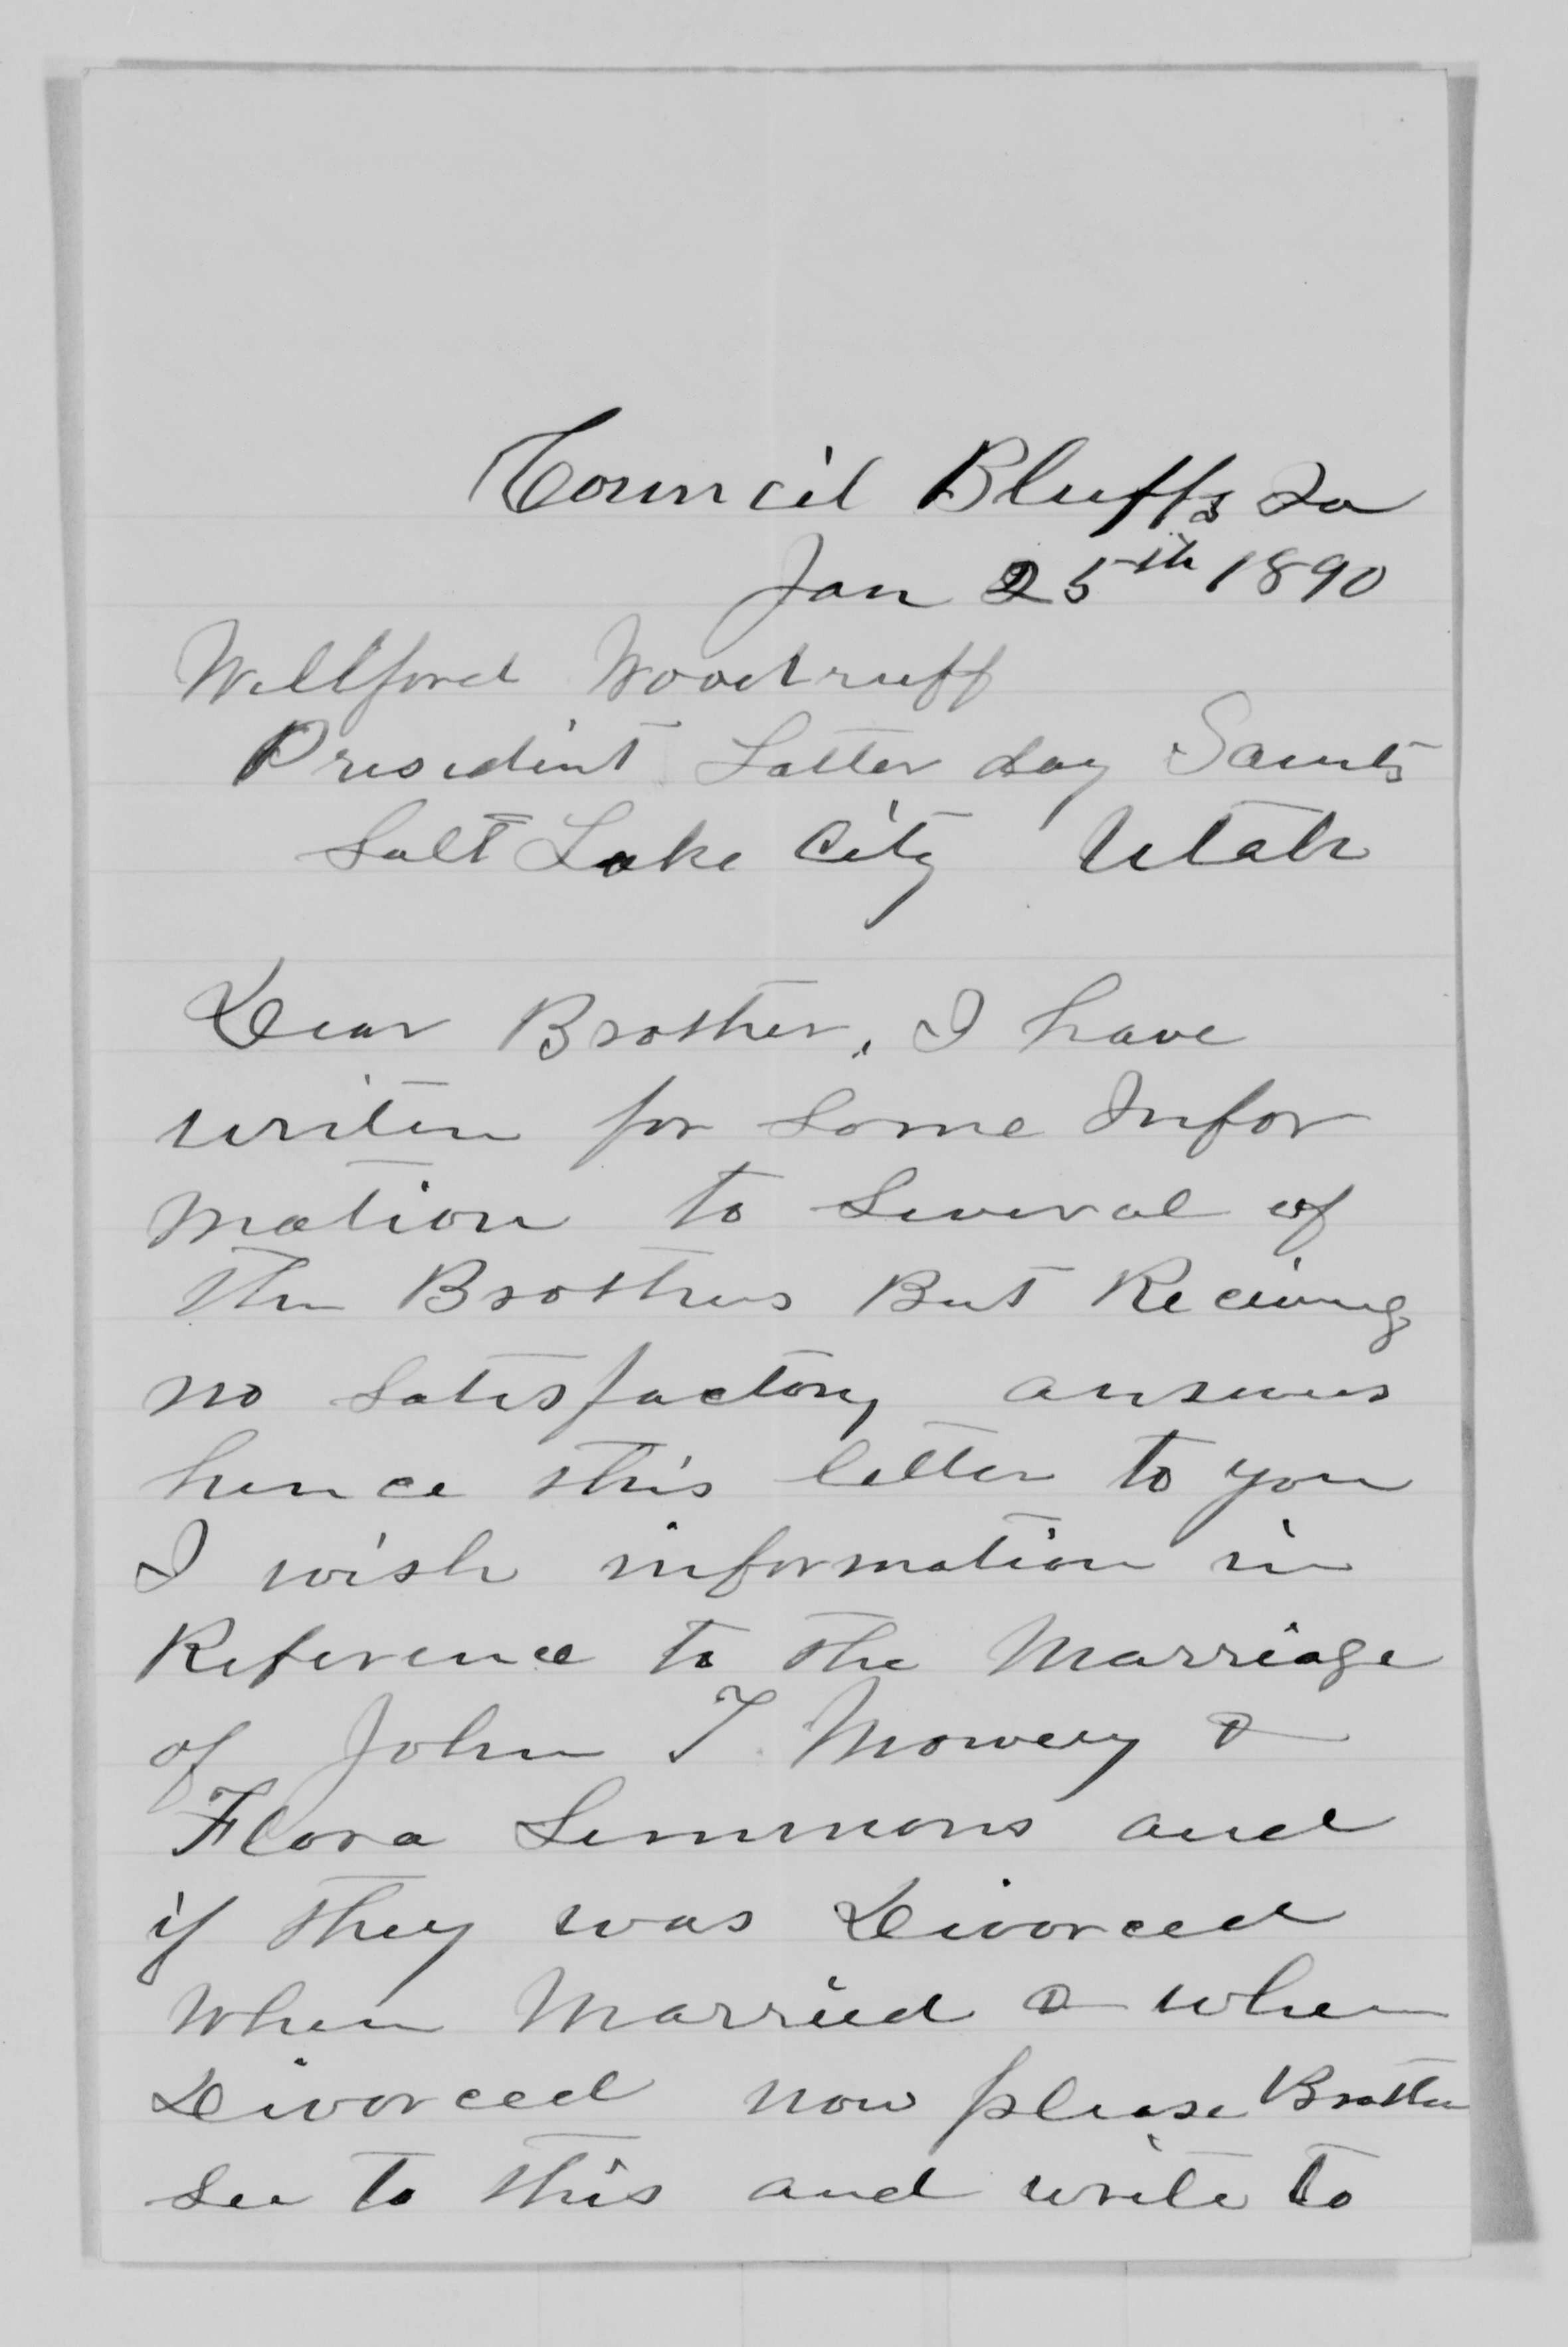 Council Bluffs Ia
Jan 25th 1890
Willford Woodruff
President Latter day Saints
Salt Lake City Utah
Dear Brother, I have
writen for some Infor
mation to several of
the Brothers But Reciving
no satisfactory answers
hence this letter to you
I wish information in
Reference to the Marriage
of John T. Mowery &
Flora Simmons and
if they was Divorced
When Married & when
Divorced now please Brother
see to this and write to